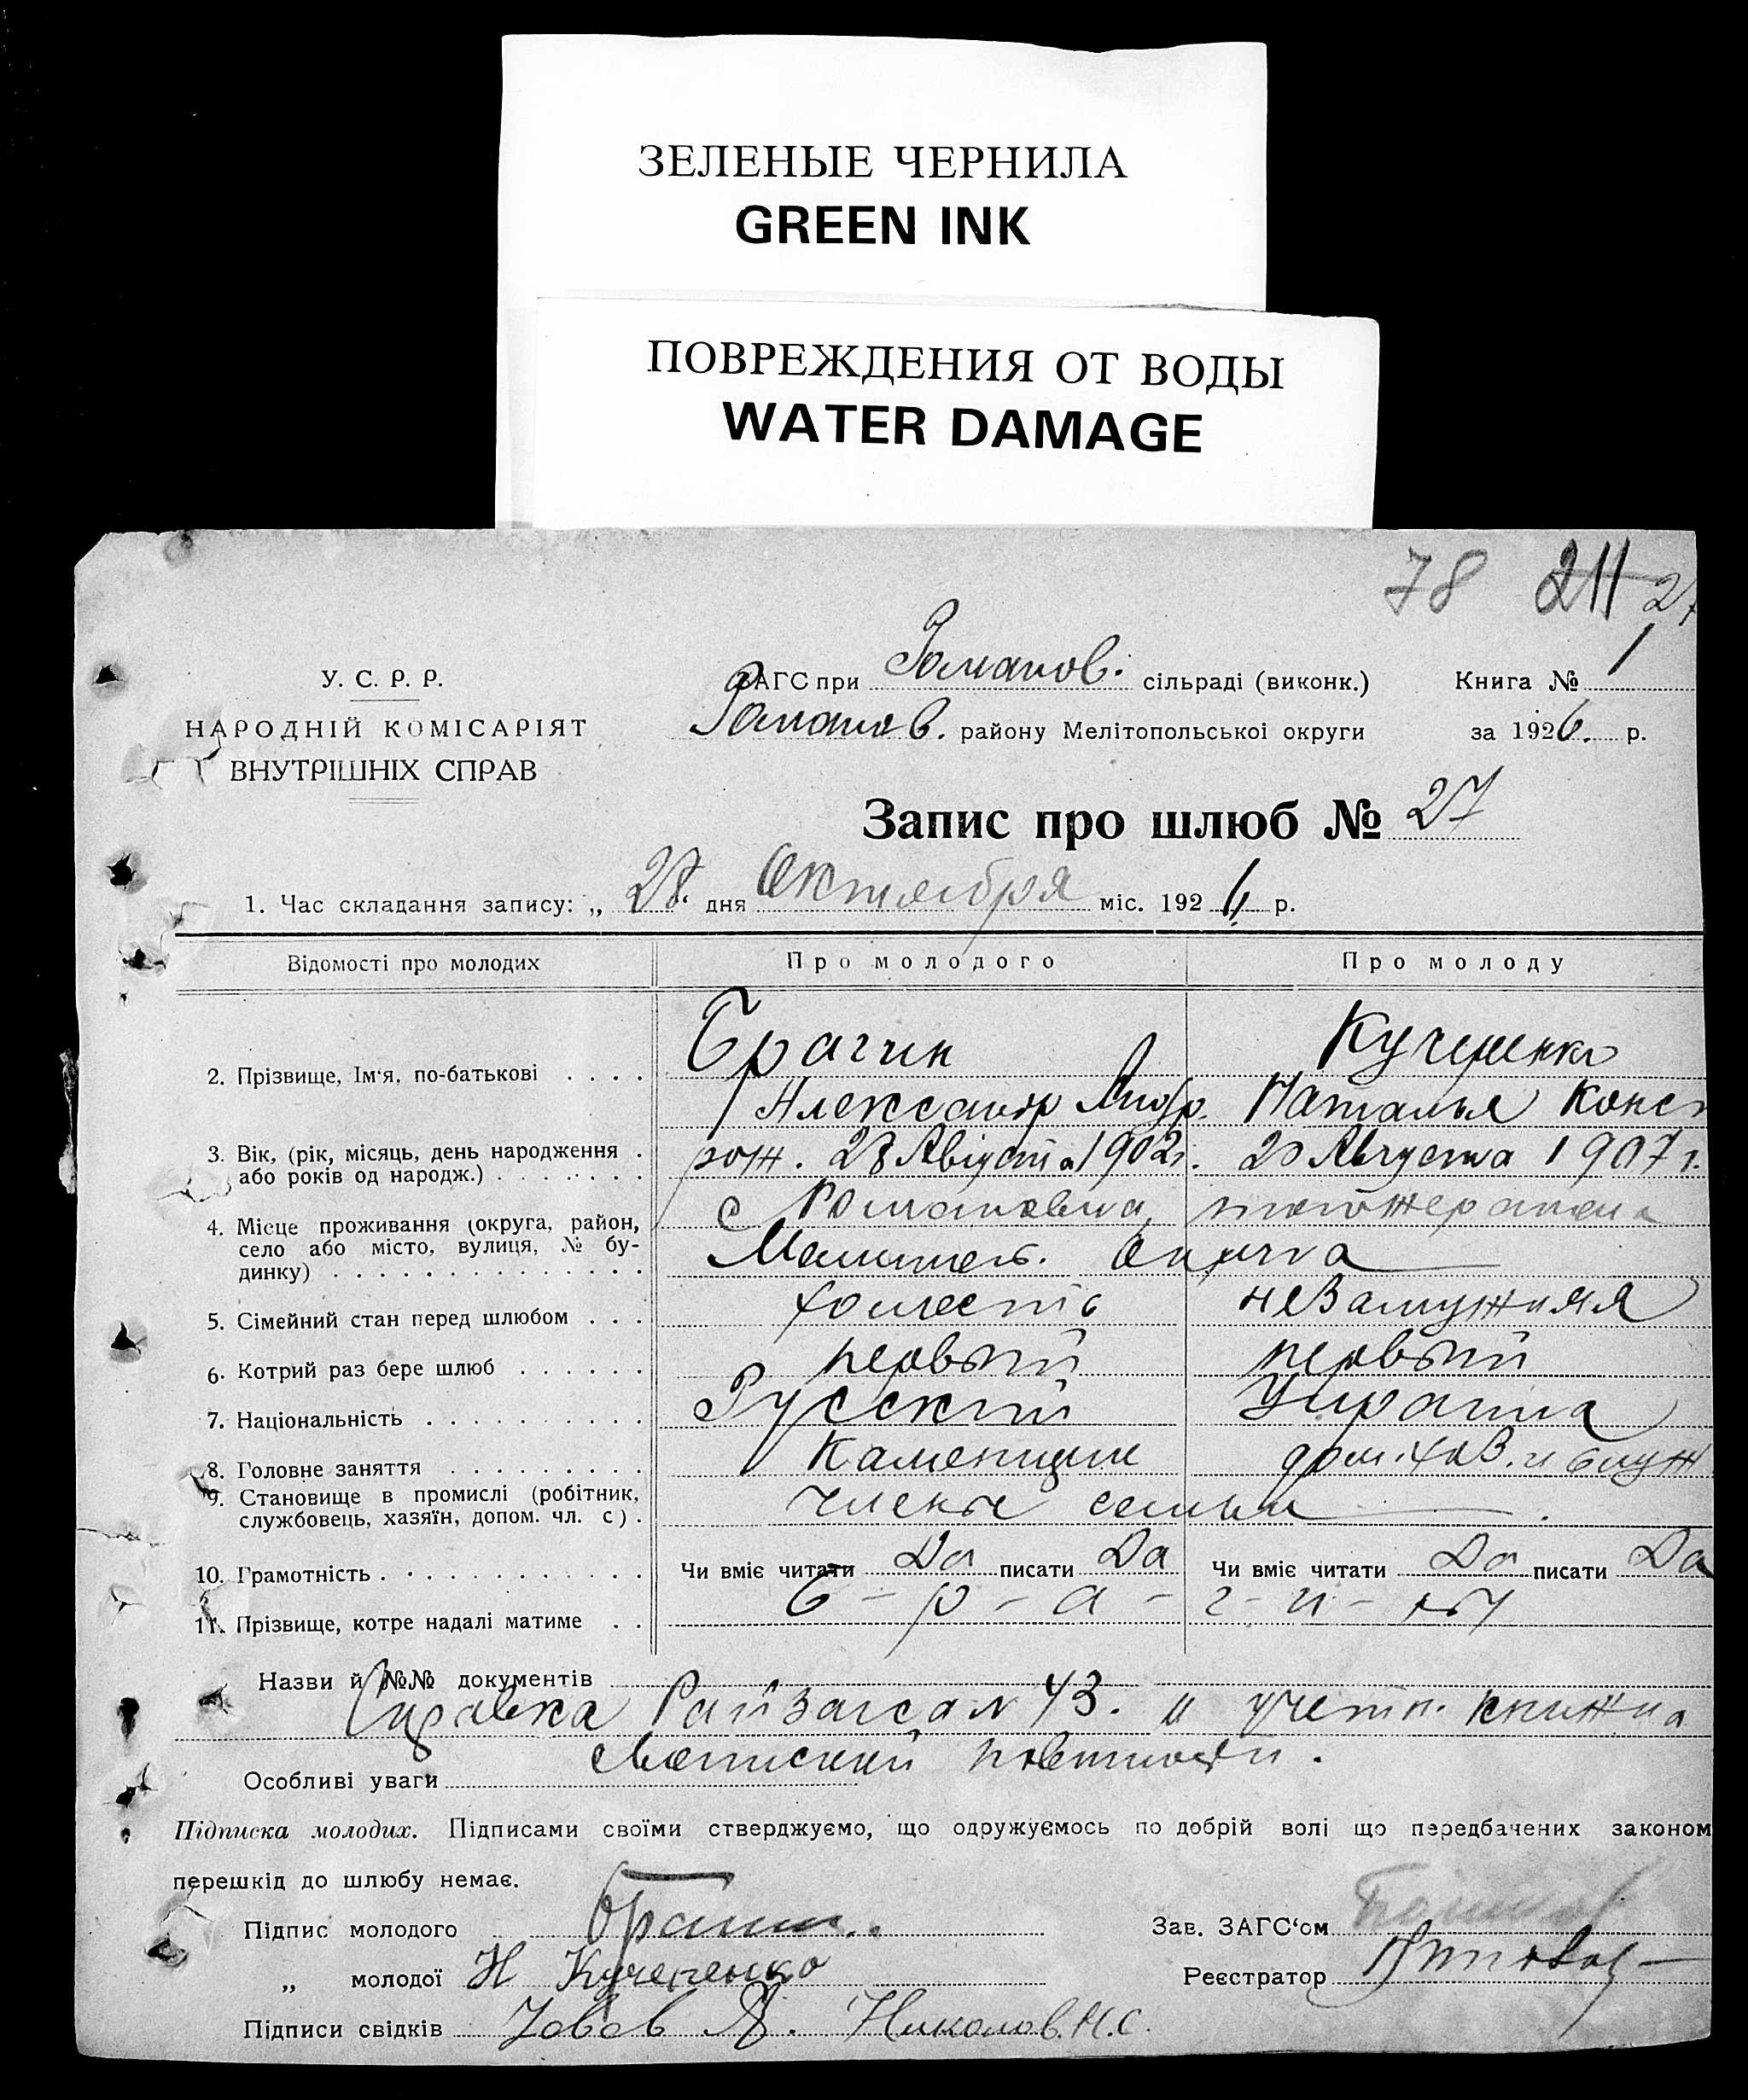 ЗЕЛЕНЫЕ ЧЕРНИЛА
GREEN INK
ПОВРЕЖДЕНИЯ ОТ ВОДЫ
WATER DAMAGE
78 211 27
У. С. Р. Р.
НАРОДНІЙ КОМІСАРІЯТ
ВНУТРІШНІХ СПРАВ
ЗАГС при Романов. сільраді (виконк.) Книга № 1
Романов. району Мелітопольської округи за 1926. р.
Запис про шлюб № 27
1. Час складання запису: „ 28. дня Октября міс. 1926 р.
Відомості про молодих Про молодого Про молоду
2. Прізвище, Ім'я, по-батькові . . . . Брагин Кучеренко
Александр Андр. Наталья Конст
3. Вік, (рік, місяць, день народження . або років од народж.) . . . . . . . рож. 28 Август а 1902 г. 20 Августа 1907 г.
4. Місце проживання (округа, район, село або місто, вулиця, № будинку) . . . . . . . . . . . . . . с Романовка,
округа
5. Сімейний стан перед шлюбом . . . холость незамужняя
6. Котрий раз бере шлюб . . . . . . первый первый
7. Національність . . . . . . . . . . Русский Украинка
8. Головне заняття . . . . . . . . . Каменщик дом. хоз. и служ
9. Становище в промислі (робітник, службовець, хазяїн, допом. чл. с) . члены семьи
10. Грамотність . . . . . . . . . . . . Чи вміє читати Да писати Да Чи вміє читати Да писати Да
11. Прізвище, котре надалі матиме . . Б - р - а - г - и - ны
Назви й №№ документів
Справка Райзагса № 43. и учетн. книжка
Особливі уваги
Підписка молодих. Підписами своїми стверджуємо, що одружуємось по добрій волі що передбачених законом
перешкід до шлюбу немає.
Підпис молодого Брагин Зав. ЗАГС'ом
„ молодої Н Кучеренко Реєстратор
Підписи свідків Николов. Н. С.